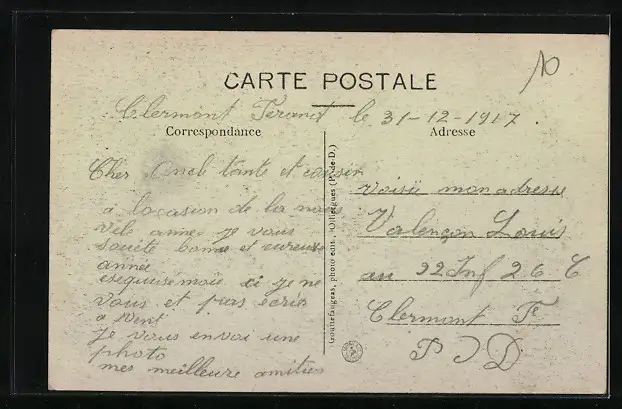 10
CARTE POSTALE
Clermont Ferand le 31-12-1917.
Correspondance
Adresse
Cher Oncle tante et cousin
a locasion de la nou
vele anneé je vous
souete bonne et eureuse
anneé
esequusemoie si je ne
vous et pas ecrie
a vent
Je vous envoi une
photo
mes meilleure amitiés
Gouttefangeas, photo édit., Olliergues (P.-de-D.)
voisie mon adresse
Valençon Louis
au 92 Inf 26 C
Clermont Fe
P D D